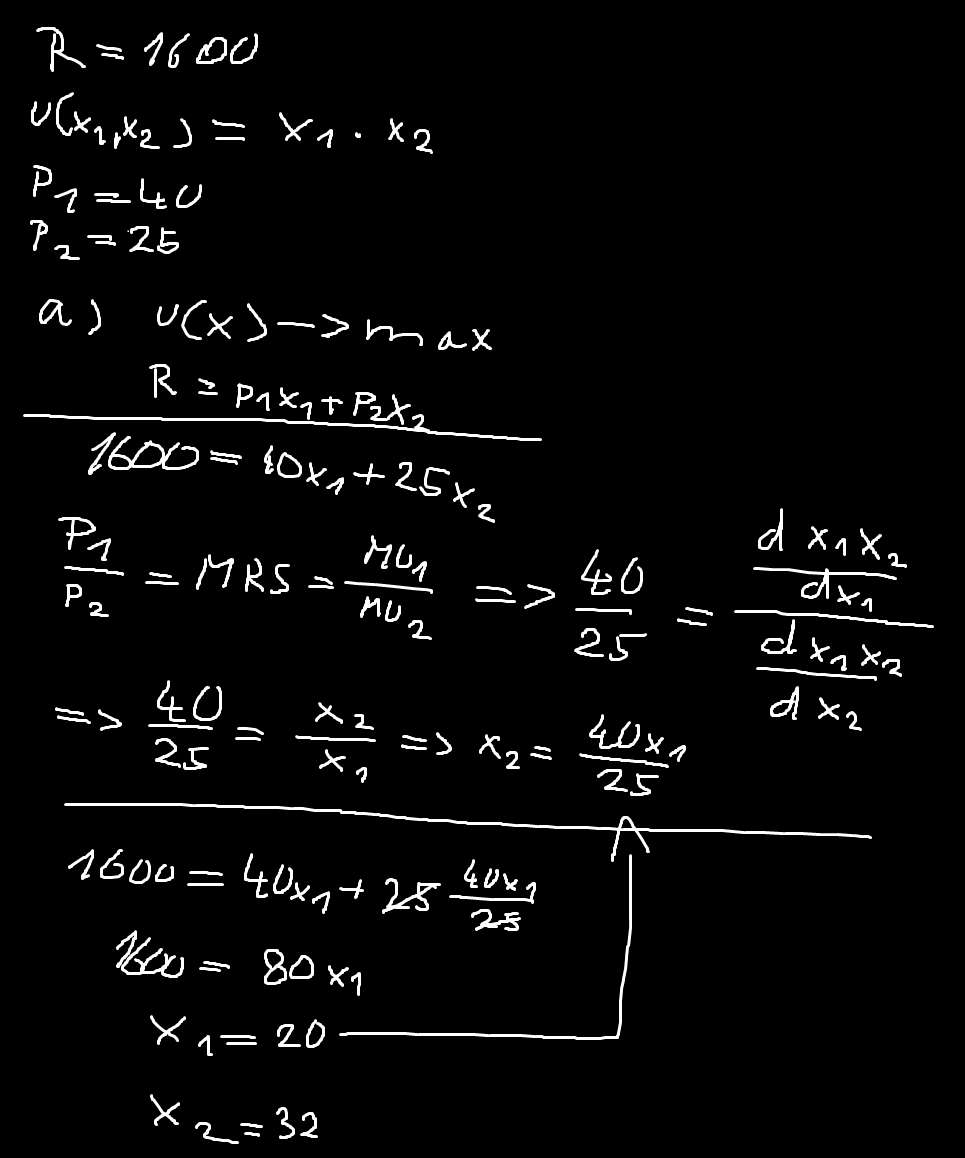 R = 1600
U(x₁,x₂) = x₁ · x₂
P₁ = 40
P₂ = 25
a) U(x) -> max
R = P₁x₁ + P₂x₂
1600 = 40x₁ + 25x₂
P₁/P₂ = MRS = MU₁/MU₂ => 40/25 = (d x₁x₂/dx₁)/(d x₁x₂/dx₂)
=> 40/25 = x₂/x₁ => x₂ = 40x₁/25
1600 = 40x₁ + 25 40x₁/25
1600 = 80x₁
x₁ = 20
x₂ = 32